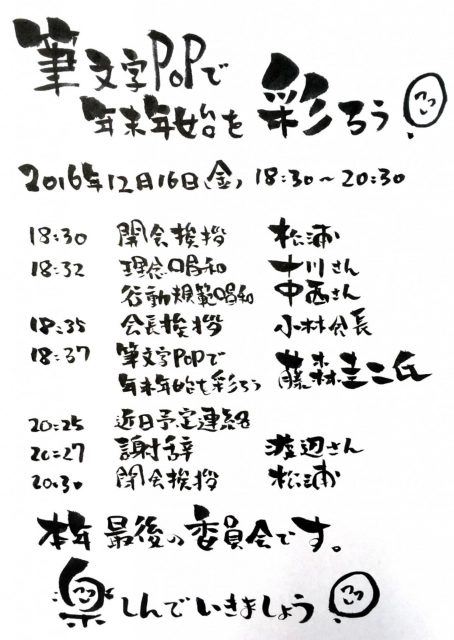 筆文字PoPで
年末年始を彩ろう
2016年12月16日(金) 18:30~20:30
18:30 開会挨拶 松浦
18:32 理念唱和 中川さん
行動規範唱和 中西さん
18:35 会長挨拶 小林会長
18:37 筆文字PoPで
年末年始を彩ろう 藤森圭二氏
20:25 近日予定連絡
20:27 謝辞 渡辺さん
20:30 閉会挨拶 松浦
本年最後の委員会です。
楽しんでいきましょう